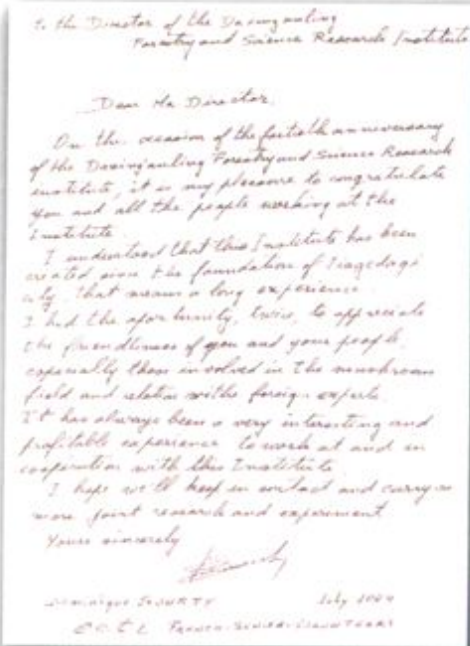 To the Director of the Daxing'anling
Forestry and Science Research Institute
Dear Mr Director,
On the occasion of the fortieth anniversary
of the Daxing'anling Forestry and Science Research
institute, it is my pleasure to congratulate
you and all the people working at the
Institute.
I understood that this Institute has been
created since the foundation of Jiagedaqi
city. that means a long experience.
I had the oportunity, twice, to appreciate
the friendliness of you and your people,
especially those involved in the mushroom
field and relation withe foreign experts.
It has always been a very interesting and
profitable experience to work at and in
cooperation with this Institute.
I hope we'll keep in contact and carry on
more joint research and experiment
Yours sincerely
Dominique
July